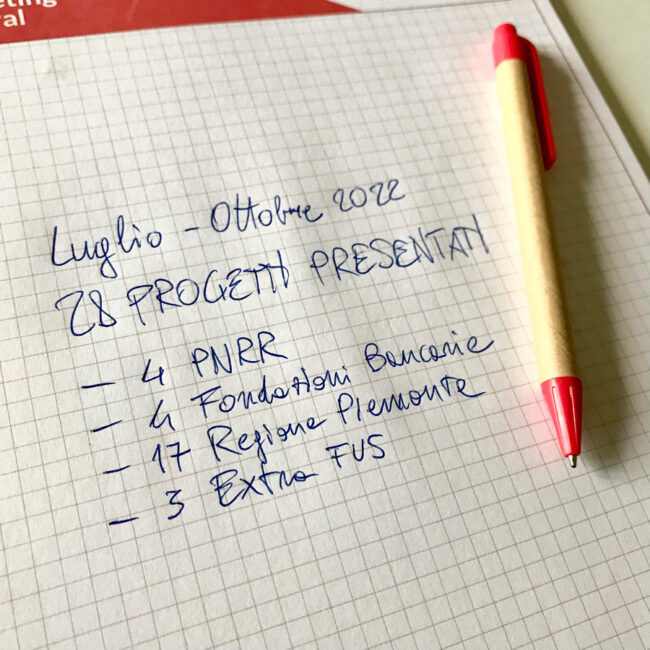 ting
ral
Luglio - Ottobre 2022
28 PROGETTI PRESENTATI
- 4 PNRR
- 4 Fondazioni Bancarie
- 17 Regione Piemonte
- 3 Extra FUS